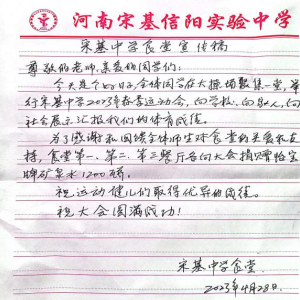 河南宋基信阳实验中学
宋基中学食堂宣传稿
尊敬的老师、亲爱的同学们:
今天是个好日子,全体同学在大操场聚集一堂,举
行宋基中学2023年春季运动会,向学校、向家人、向
社会展示汇报我们的体育成绩。
为了感谢和回馈全体师生对食堂的关爱和支
持,食堂第一、第二、第三餐厅各向大会捐赠怡宝
牌矿泉水1200瓶。
祝运动健儿们取得优异的成绩。
祝大会圆满成功!
宋基中学食堂
2023年4月28日.